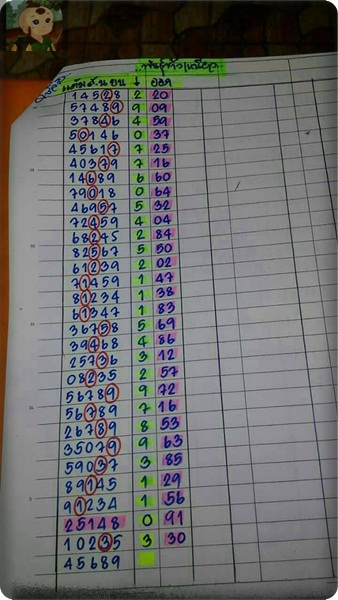 14528 2 20
57489 9 09
37846 4 59
50146 0 37
45617 7 25
40379 7 16
14689 6 60
79018 0 64
46957 5 32
72459 4 04
68245 2 84
82567 5 50
61239 2 02
71459 1 47
81234 1 38
61347 1 83
36758 5 69
39468 4 86
25736 3 12
08235 2 57
56789 9 72
56789 7 16
26789 8 53
35079 9 63
59037 3 85
89145 1 29
91234 1 56
25148 0 91
10235 3 30
45689